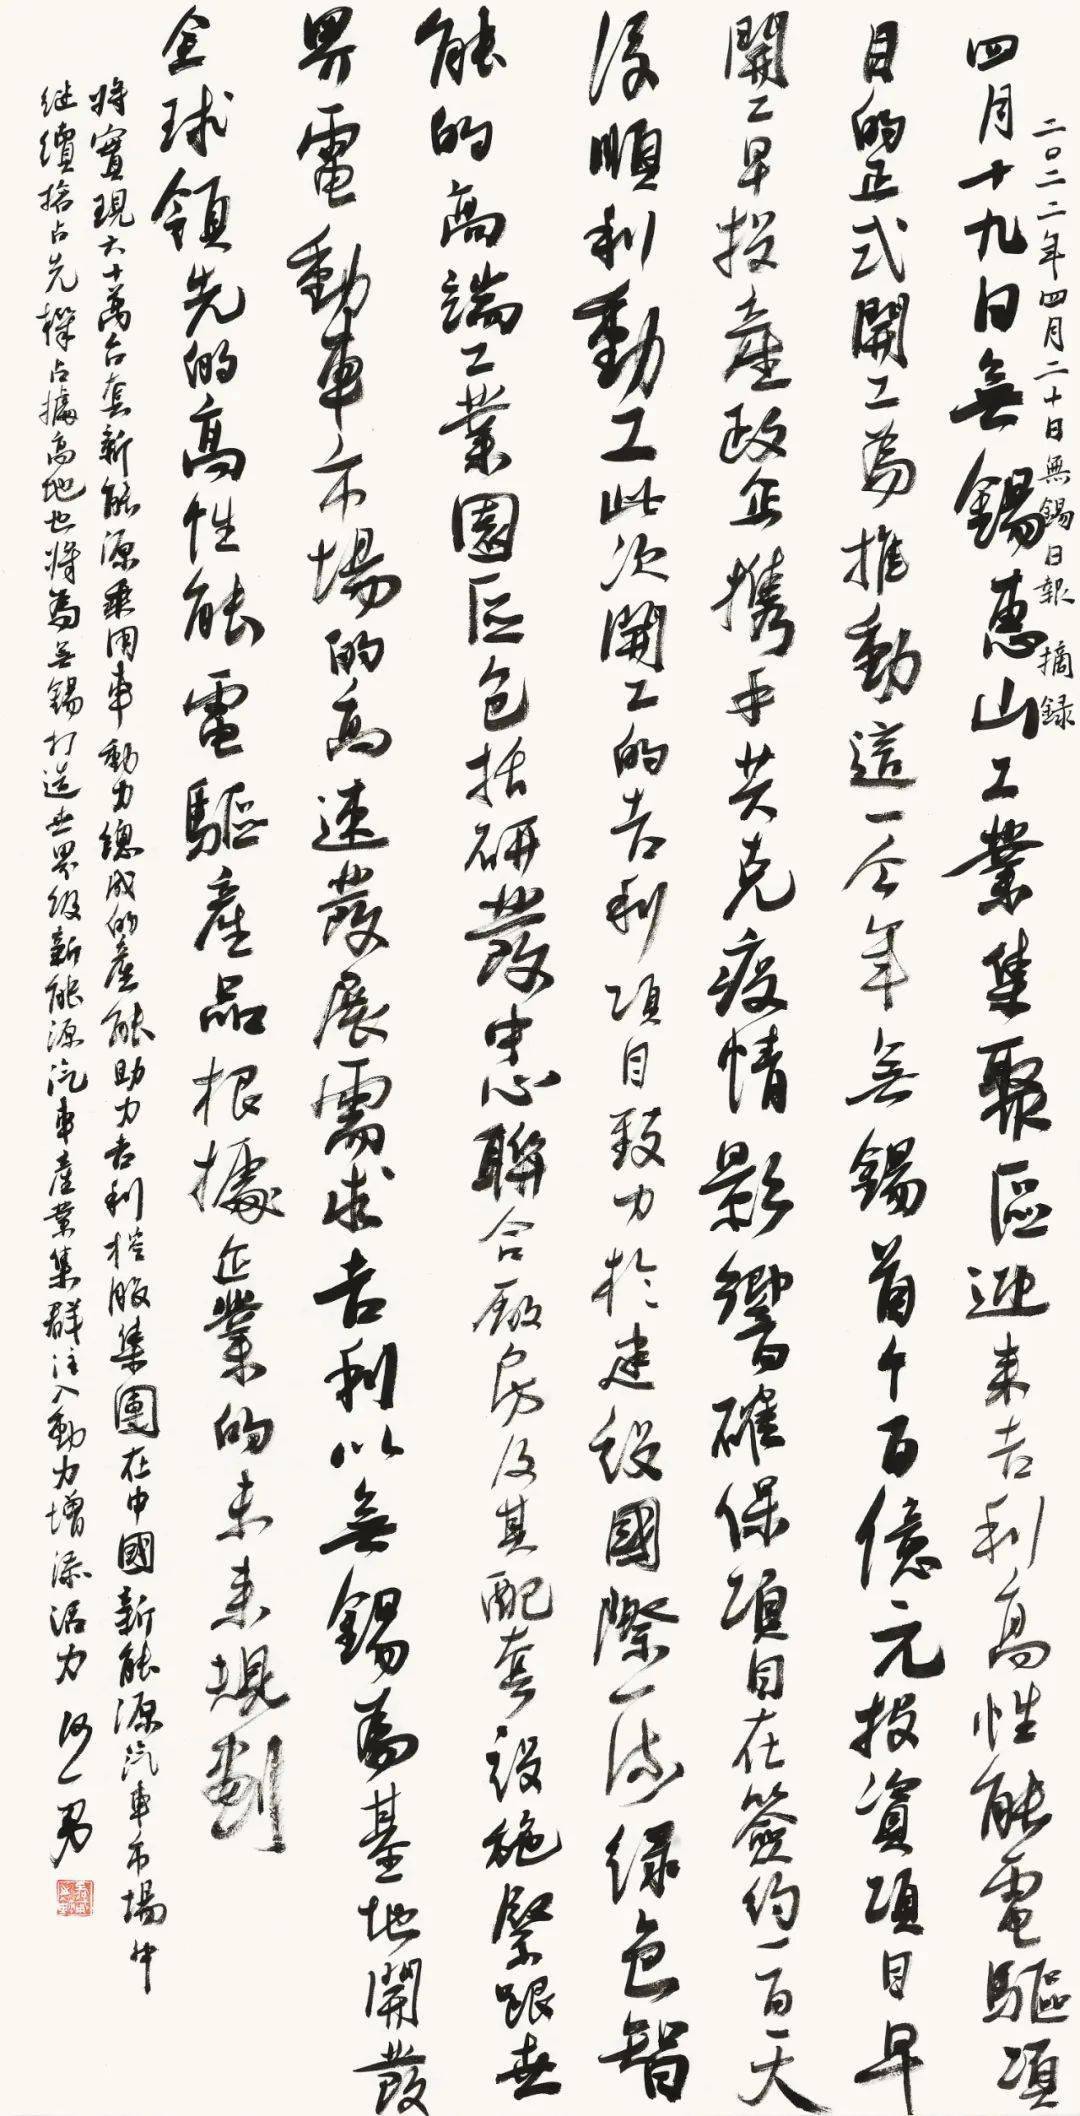 二〇二二年四月二十日無錫日報 摘録
四月十九日無錫惠山工業集聚區迎来吉利高性能電驅項
目的正式開工為推動這一今年無錫首个百億元投資項目早
開工早投産政企携手共克疫情影響確保項目在簽約一百天
後順利動工此次開工的吉利項目致力於建設國際一流绿色智
能的高端工業園區包括研發中心聯合厰房及其配套設施緊跟世
界電動車市場的高速發展需求吉利以無錫為基地開發
全球領先的高性能電驅産品根據企業的未来規劃
将實現六十萬台套新能源乘用車動力總成的産能助力吉利控股集團在中國新能源汽車市場中
继續搶占先機占據高地也将為無錫打造世界级新能源汽車産業集群注入動力增添活力 一男